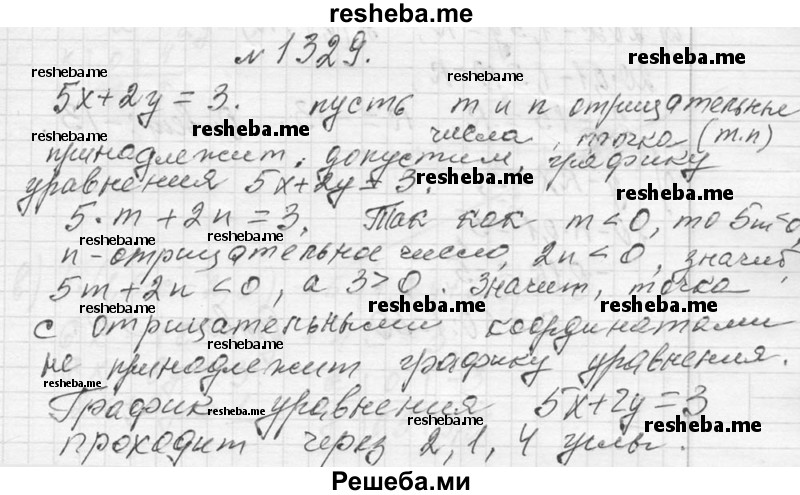 resheba.me
№ 1329.
resheba.me resheba.me resheba.me
5x+2y = 3. пусть m и n отрицательные
resheba.me resheba.me resheba.me
числа, точка (m.n)
принадлежит, допустим, графику
resheba.me
уравнения 5x+2y = 3.
5·m + 2n = 3, Так как m < 0, то 5m<0,
resheba.me resheba.me resheba.me
n - отрицательное число, 2n < 0, значит,
5m + 2n < 0, а 3 > 0. Значит, точка
resheba.me resheba.me resheba.me
с отрицательными координатами
не принадлежит графику уравнения.
resheba.me resheba.me resheba.me
График уравнения 5x+2y = 3
resheba.me resheba.me
проходит через 2, 1, 4
Решеба.ми